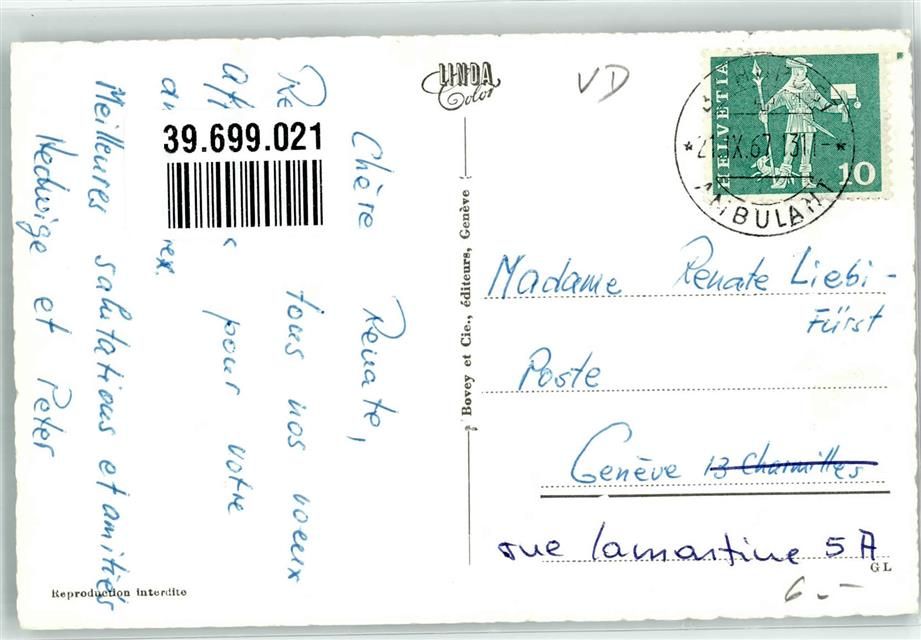 LINDA
Color
VD
HELVETIA
10
21.IX.67 1311-
AMBULANT
39.699.021
Chère Renate,
Re tous nos voeux
pour votre
Meilleures salutations et amitiés
Hedwige et Peter
Bovey et Cie., éditeurs, Genève
Madame Renate Liebi-
Fürst
Poste
Genève 13 Charmilles
rue lamartine 5 A
GL
Reproduction interdite
6.-